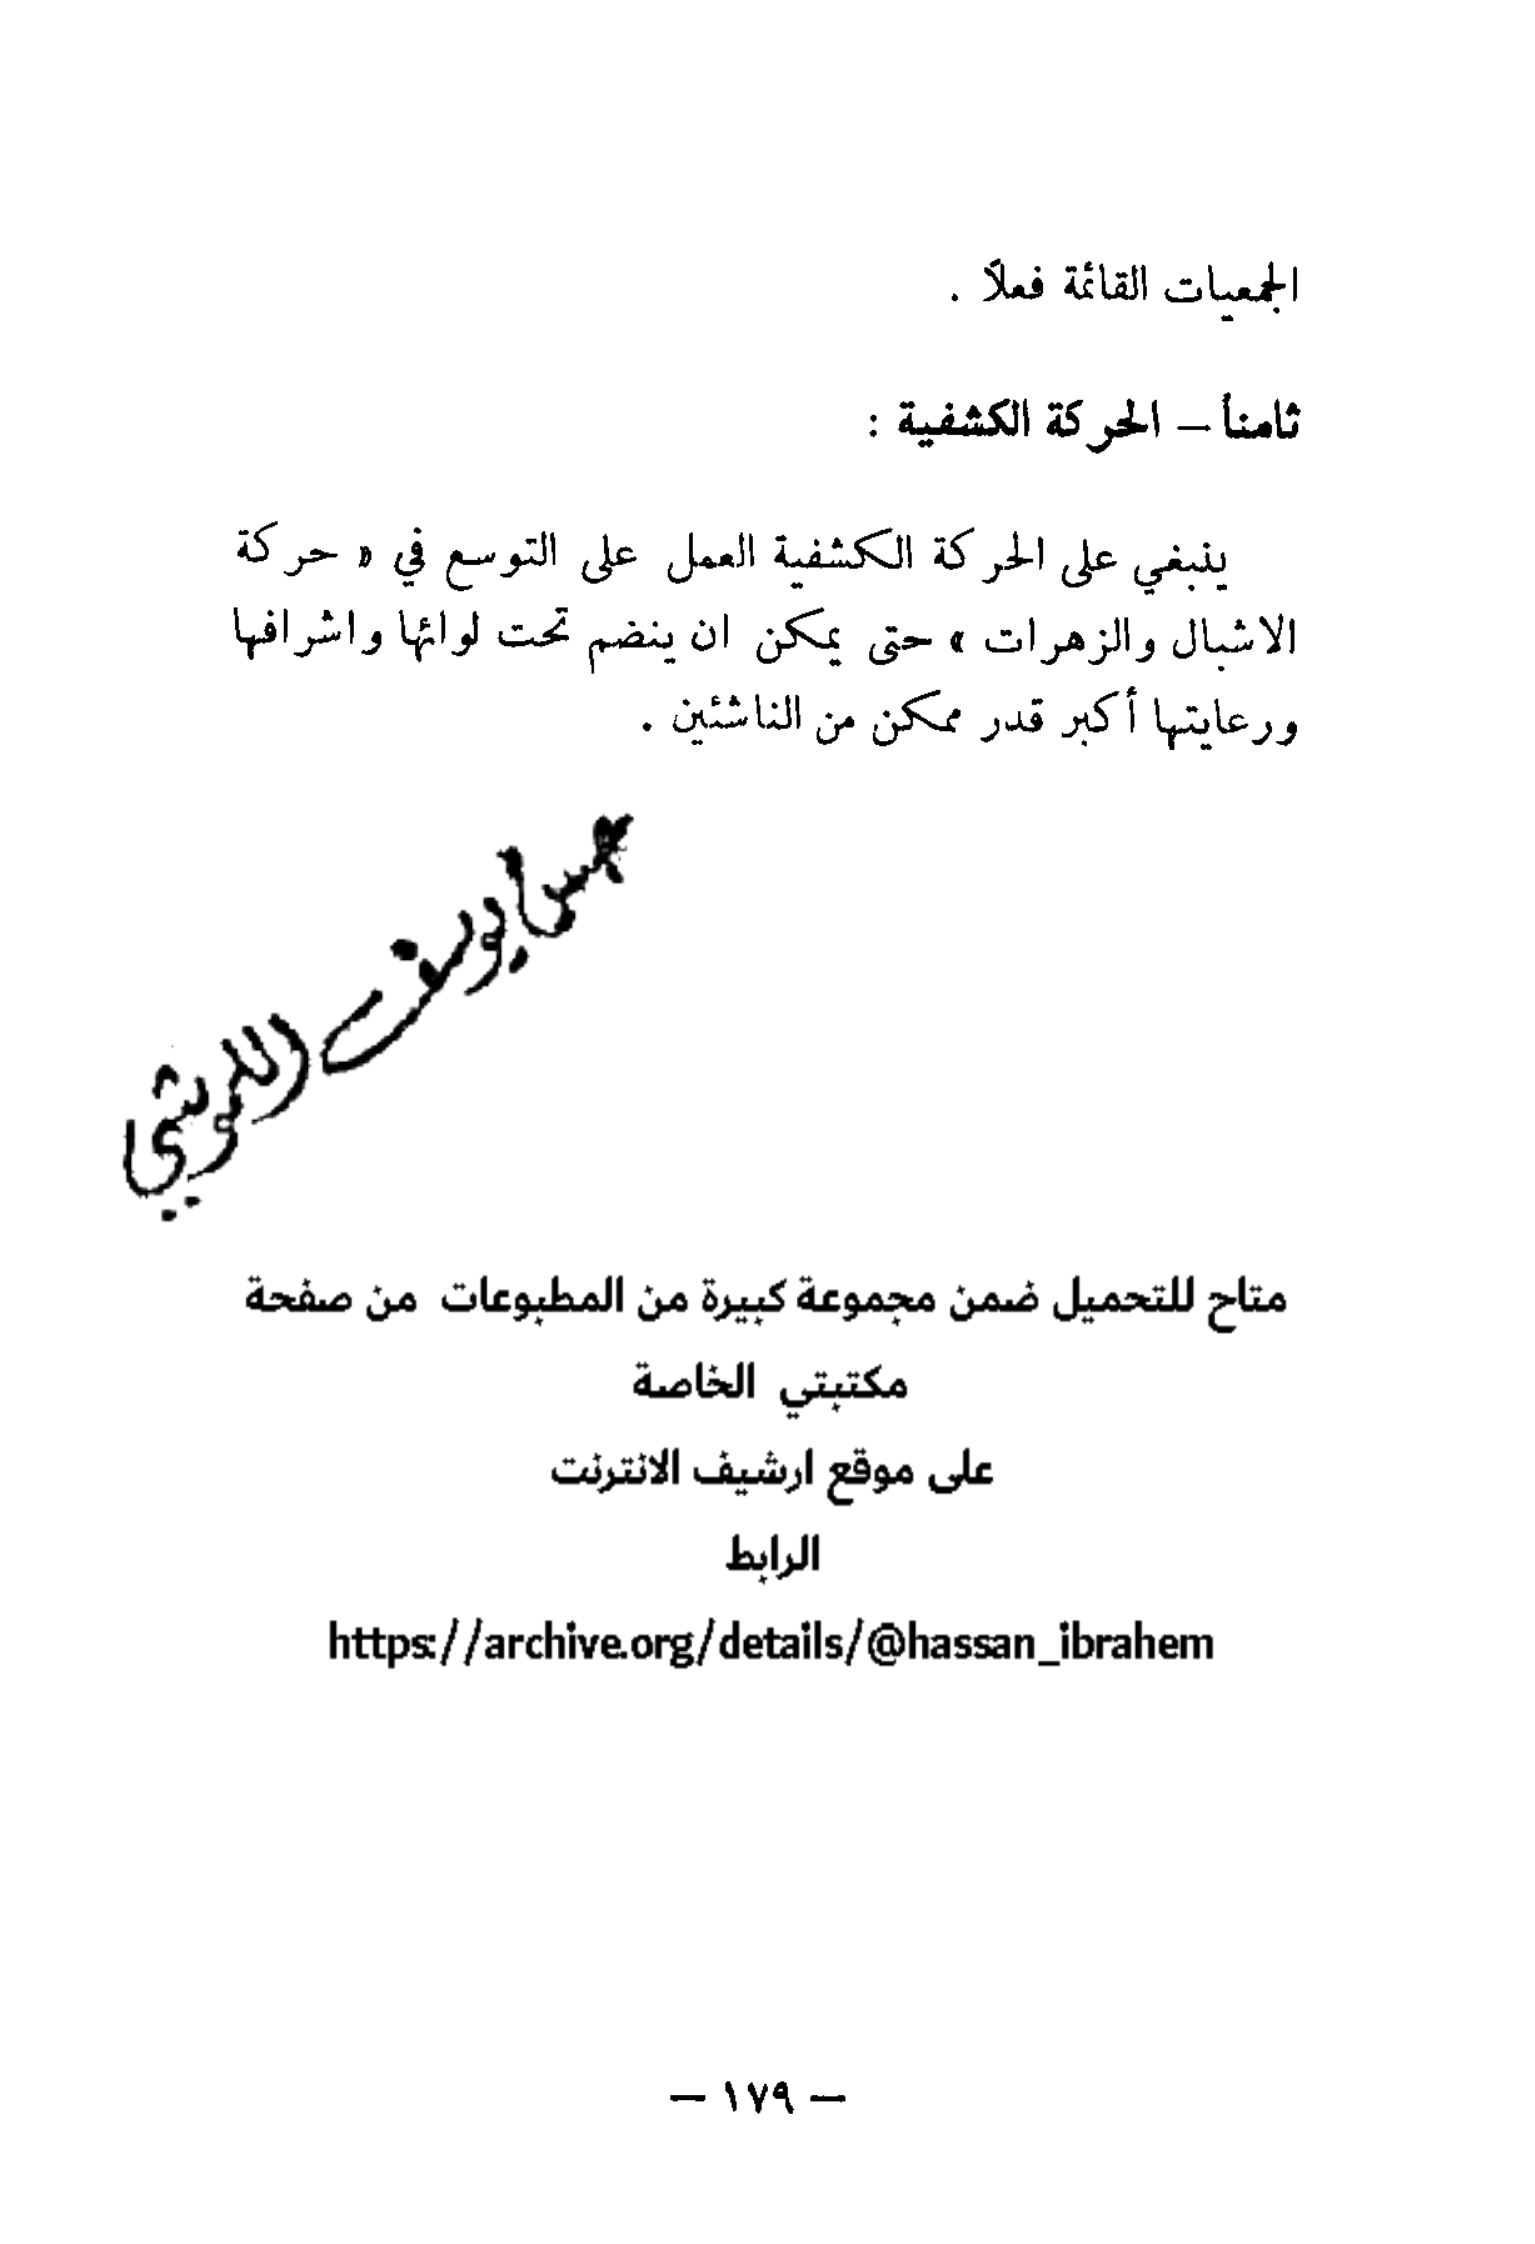 الجمعيات القائمة فعلاً .
ثامناً — الحركة الكشفية :
ينبغي على الحركة الكشفية العمل على التوسع في « حركة
الاشبال والزهرات » حتى يمكن ان ينضم تحت لوائها واشرافها
ورعايتها أكبر قدر ممكن من الناشئين .
يوسف
متاح للتحميل ضمن مجموعة كبيرة من المطبوعات من صفحة
مكتبتي الخاصة
على موقع ارشيف الانترنت
الرابط
https://archive.org/details/@hassan_ibrahem
— ١٧٩ —